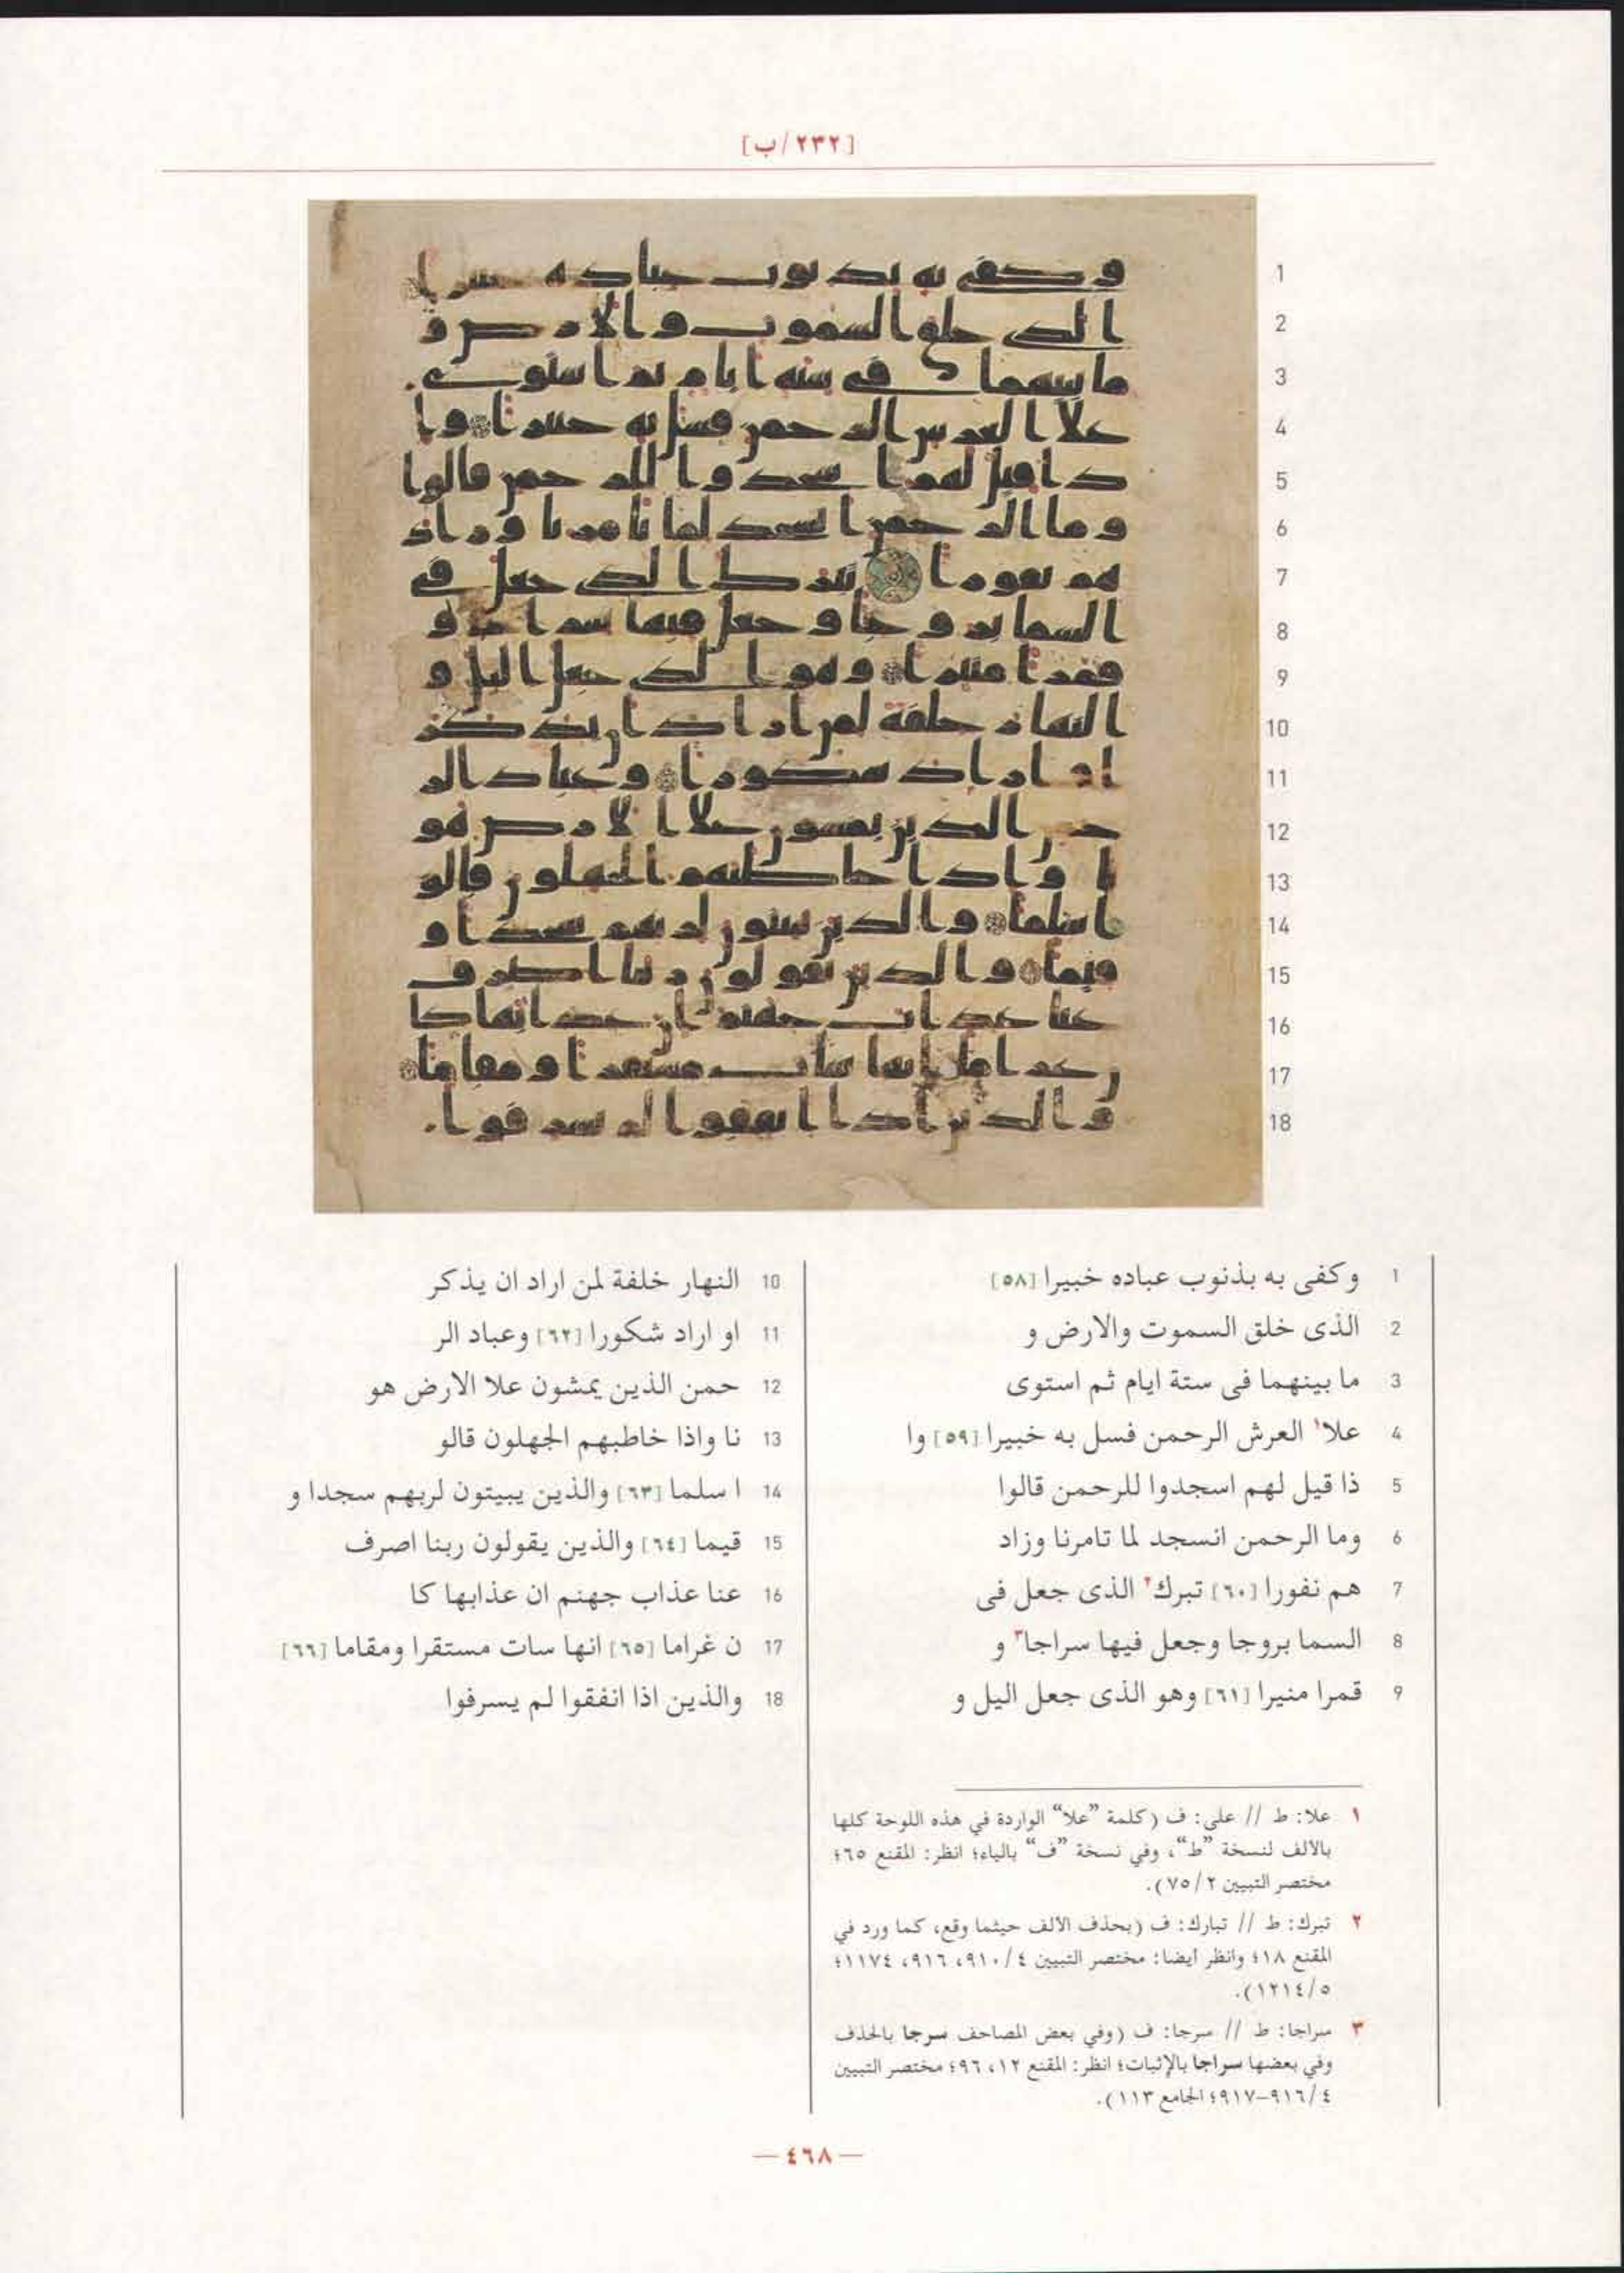 [٢٣٢/ب]
1 وكفى به بذنوب عباده خبيرا [٥٨]
2 الذى خلق السموت والارض و
3 ما بينهما فى ستة ايام ثم استوى
4 علا١ العرش الرحمن فسل به خبيرا [٥٩] وا
5 ذا قيل لهم اسجدوا للرحمن قالوا
6 وما الرحمن انسجد لما تامرنا وزاد
7 هم نفورا [٦٠] تبرك٢ الذى جعل فى
8 السما بروجا وجعل فيها سراجا٣ و
9 قمرا منيرا [٦١] وهو الذى جعل اليل و
10 النهار خلفة لمن اراد ان يذكر
11 او اراد شكورا [٦٢] وعباد الر
12 حمن الذين يمشون علا الارض هو
13 نا واذا خاطبهم الجهلون قالو
14 ا سلما [٦٣] والذين يبيتون لربهم سجدا و
15 قيما [٦٤] والذين يقولون ربنا اصرف
16 عنا عذاب جهنم ان عذابها كا
17 ن غراما [٦٥] انها سات مستقرا ومقاما [٦٦]
18 والذين اذا انفقوا لم يسرفوا
١ علا: ط // على: ف (كلمة ”علا“ الواردة في هذه اللوحة كلها
بالالف لنسخة ”ط“، وفي نسخة ”ف“ بالياء؛ انظر: المقنع ٦٥؛
مختصر التبيين ٧٥/٢).
٢ تبرك: ط // تبارك: ف (بحذف الالف حيثما وقع، كما ورد في
المقنع ١٨؛ وانظر ايضا: مختصر التبيين ٩١٠/٤، ٩١٦، ١١٧٤؛
١٢١٤/٥).
٣ سراجا: ط // سرجا: ف (وفي بعض المصاحف سرجا بالحذف
وفي بعضها سراجا بالإثبات؛ انظر: المقنع ١٢، ٩٦؛ مختصر التبيين
٩١٦/٤–٩١٧؛ الجامع ١١٣).
— ٤٦٨ —